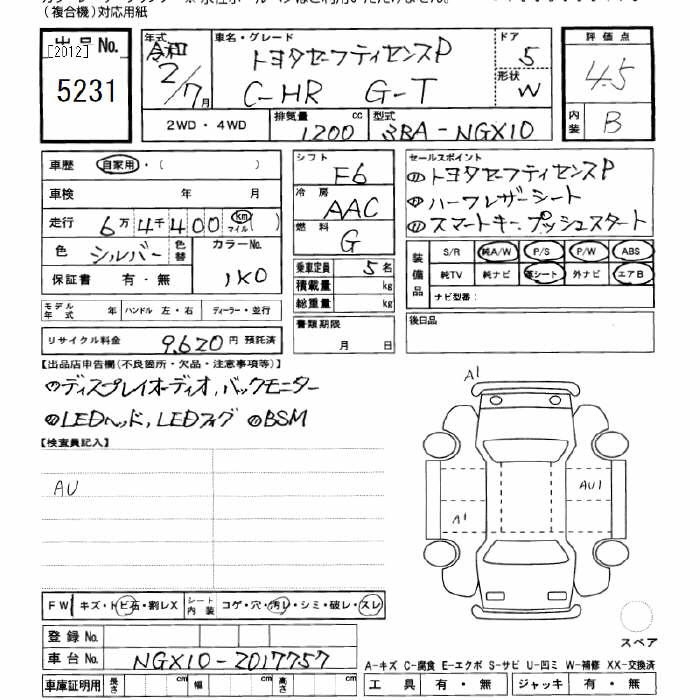 (複合機)対応用紙
出品No. [2012] 5231
年式 令和 2/7月
車名・グレード トヨタセーフティセンスP
C-HR G-T
ドア 5
形状 W
評価点 4.5
内装 B
2WD・4WD 排気量 1200 cc 型式 3BA-NGX10
車歴 自家用・( )
車検 年 月
走行 6万4千400 km マイル( )
色 シルバー 色替 カラーNo. 1K0
保証書 有・無
モデル年式 年 ハンドル 左・右 ディーラー・並行
リサイクル料金 9,620円 預託済
シフト F6
冷房 AAC
燃料 G
乗車定員 5名
積載量 kg
総重量 kg
書類期限 月 日
セールスポイント
トヨタセーフティセンスP
ハーフレザーシート
スマートキー、プッシュスタート
装備品 S/R 純A/W P/S P/W ABS
純TV 純ナビ 革シート 外ナビ エアB
ナビ型番:
後日品
【出品店申告欄(不良箇所・欠品・注意事項等)】
ディスプレイオーディオ、バックモニター
LEDヘッド、LEDフォグ BSM
【検査員記入】
AU
A1
AU1
A1
スペア
FW キズ・トビ石・割レX シート内装 コゲ・穴・汚レ・シミ・破レ・スレ
登録No.
車台No. NGX10-2017757
車庫証明用 長さ cm 幅 cm 高さ cm
A-キズ C-腐食 E-エクボ S-サビ U-凹ミ W-補修 XX-交換済
工具 有・無 ジャッキ 有・無